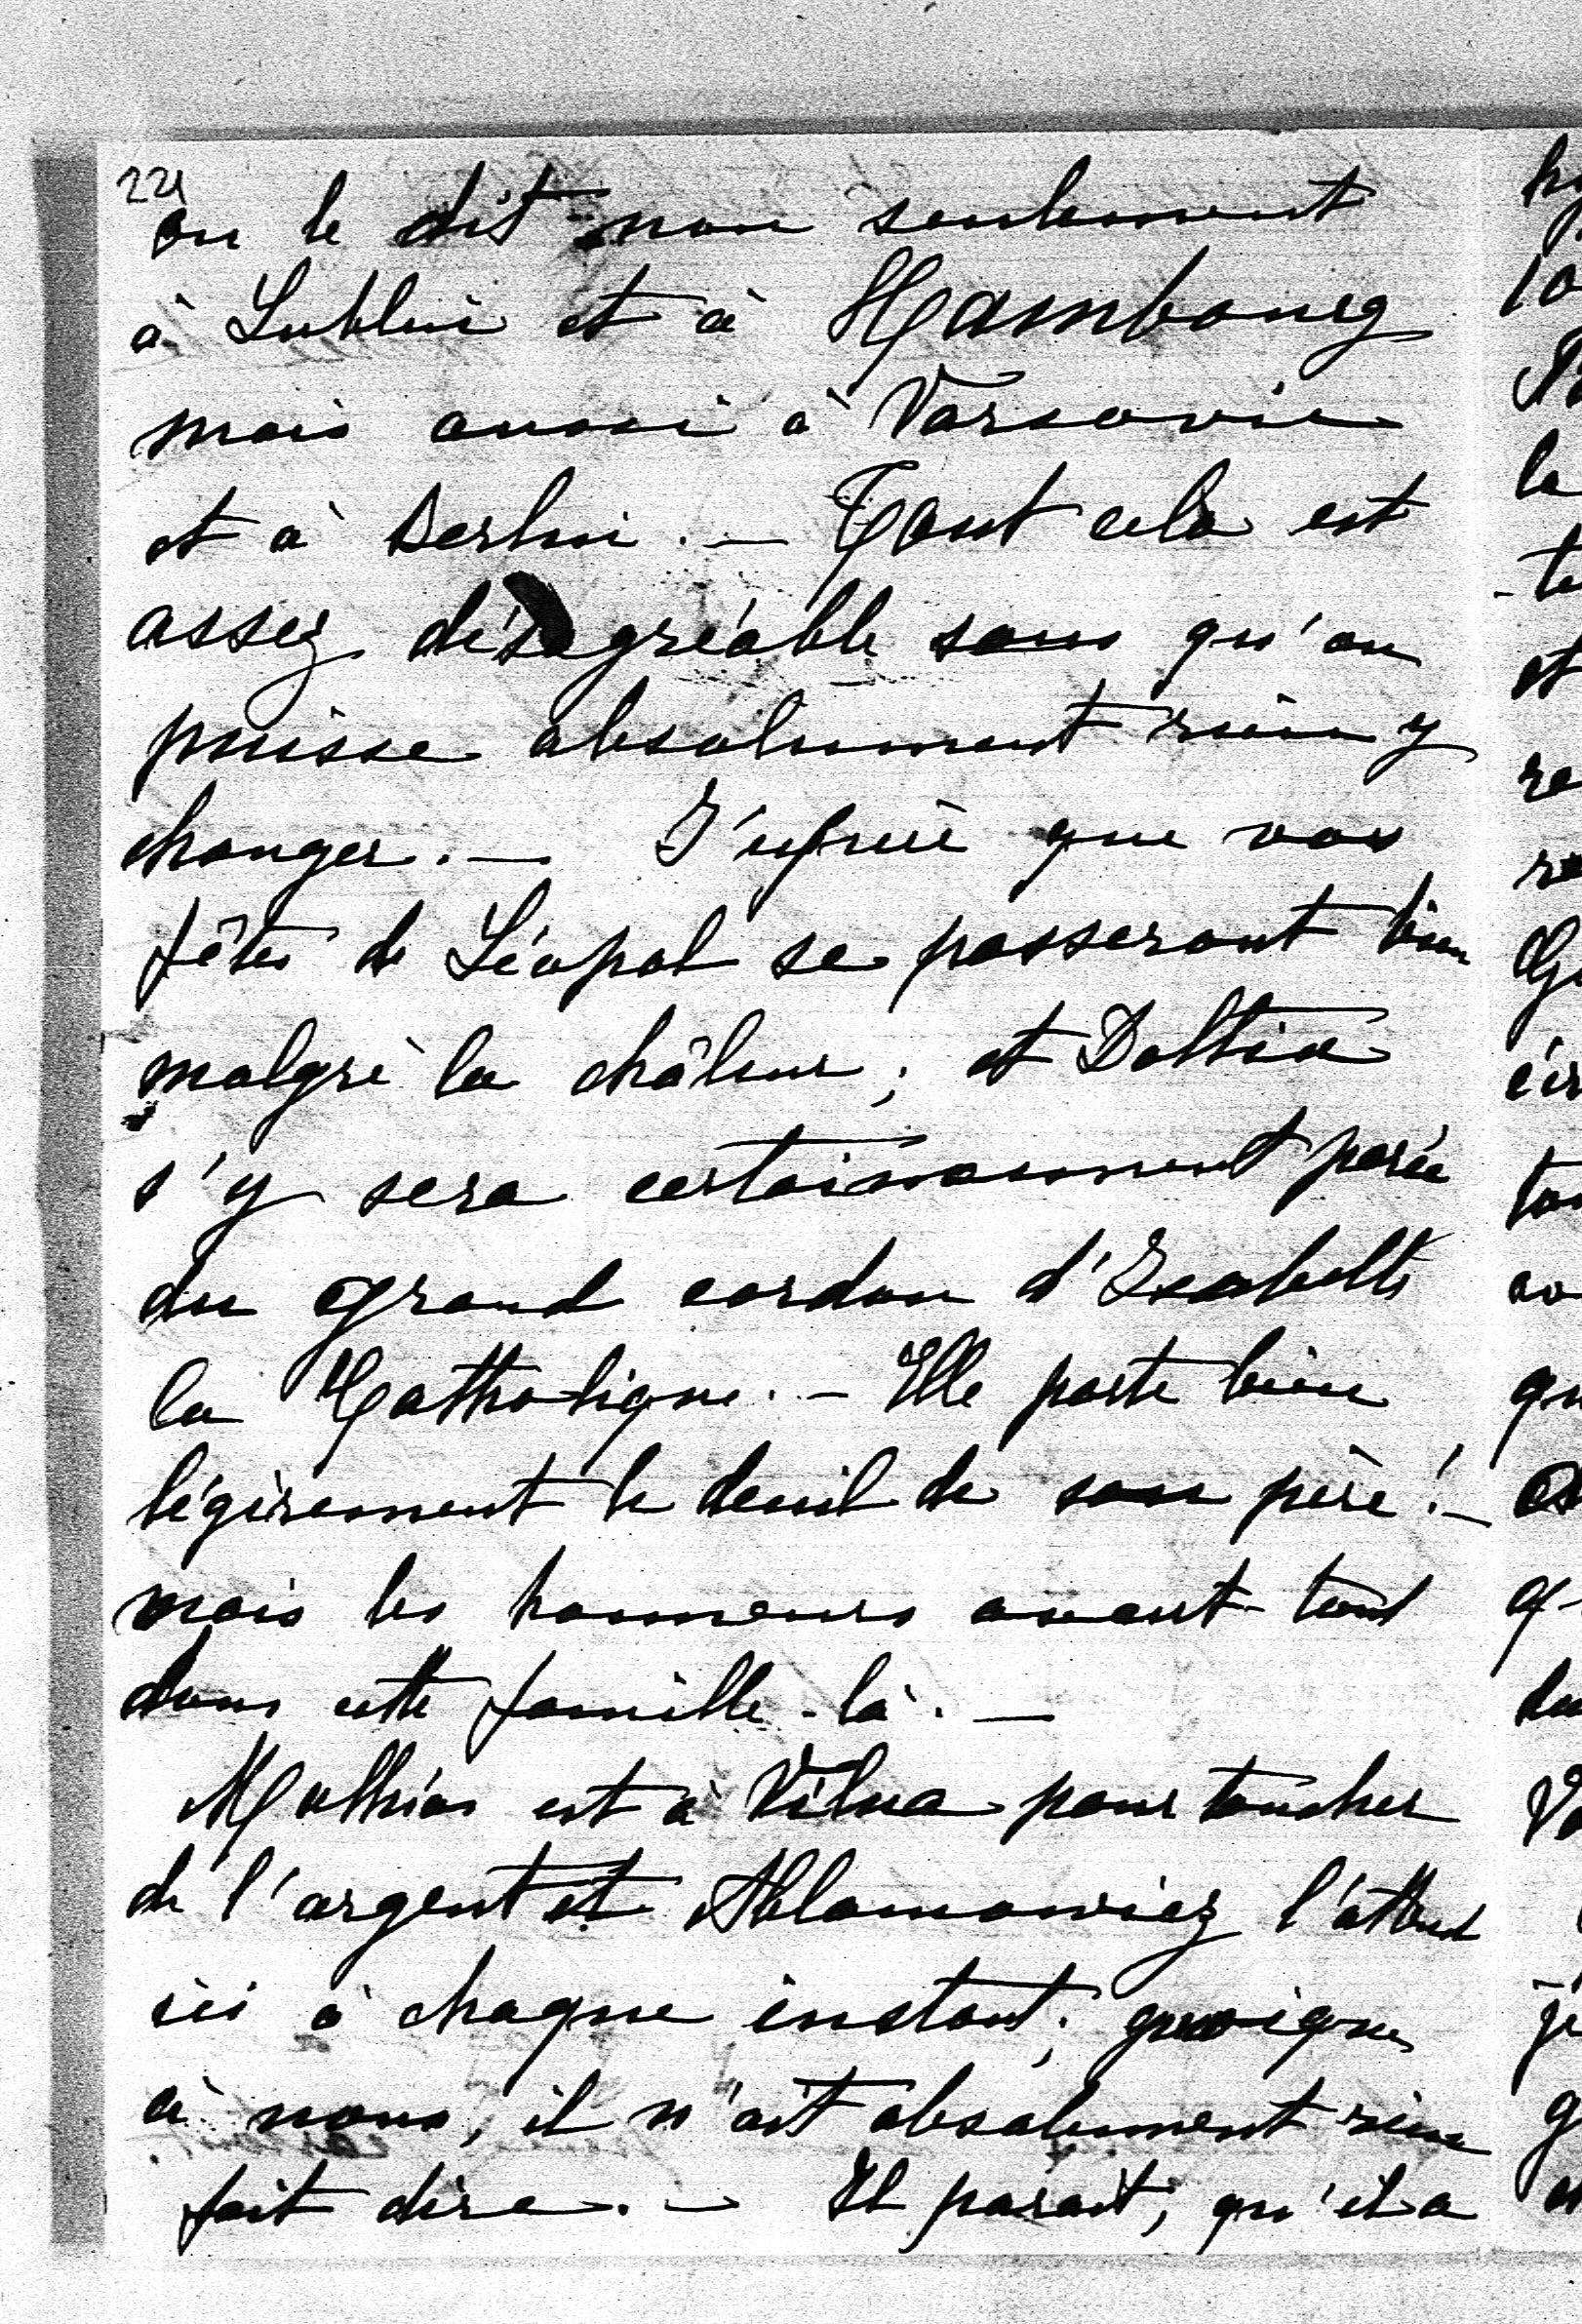 221
on le dit non seulement
à Lublin et à Hambourg
mais aussi à Varsovie
et à Berlin. — Tout cela est
assez désagréable sans qu'on
puisse absolument rien y
changer. — J'espère que vos
fêtes de Léopol se passeront bien
malgré la châleur; et
s'y sera certainement parée
du grand cordon d'Isabelle
la Catholique. — Elle porte bien
légèrement le deuil de son père! —
mais les honneurs avant tout
dans cette famille-là. —
Mathias est à Vilna pour toucher
de l'argent et Ablamowicz l'attend
ici à chaque instant; quoique
à nous, il n'ait absolument rien
fait dire. — Il parait, qu'il a